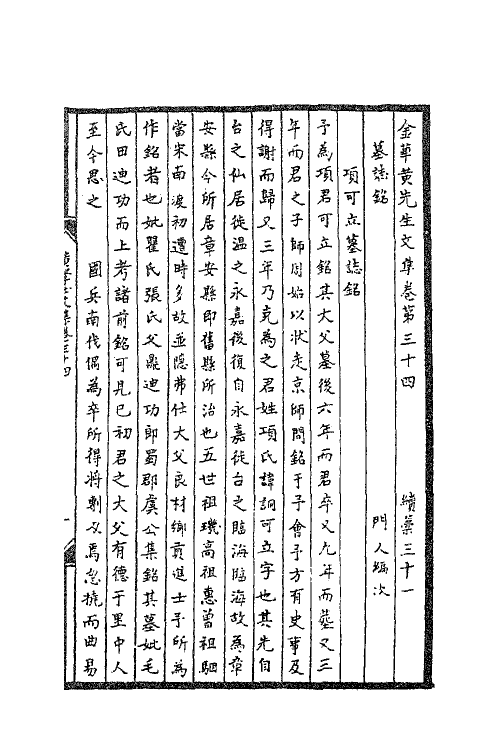 金華黃先生文集卷第三十四　續藁三十一
墓誌銘　門人編次
項可立墓誌銘
予為項君可立銘其大父墓後六年而君卒又九年而塟又三
年而君之子師周始以狀走京師問銘于予會予方有史事及
得謝而歸又三年乃克為之君姓項氏諱詗可立字也其先自
台之仙居徙溫之永嘉後復自永嘉徙台之臨海臨海故為章
安縣今所居章安縣即舊縣所治也五世祖璣高祖惠曾祖駟
當宋南渡初遭時多故並隱弗仕大父良材鄉貢進士予所為
作銘者也妣瞿氏張氏父鼎迪功郎蜀郡虞公集銘其墓妣毛
氏田迪功而上考諸前銘可見已初君之大父有德于里中人
至今思之　國兵南伐偶為卒所得將剚以焉忽撓而曲易